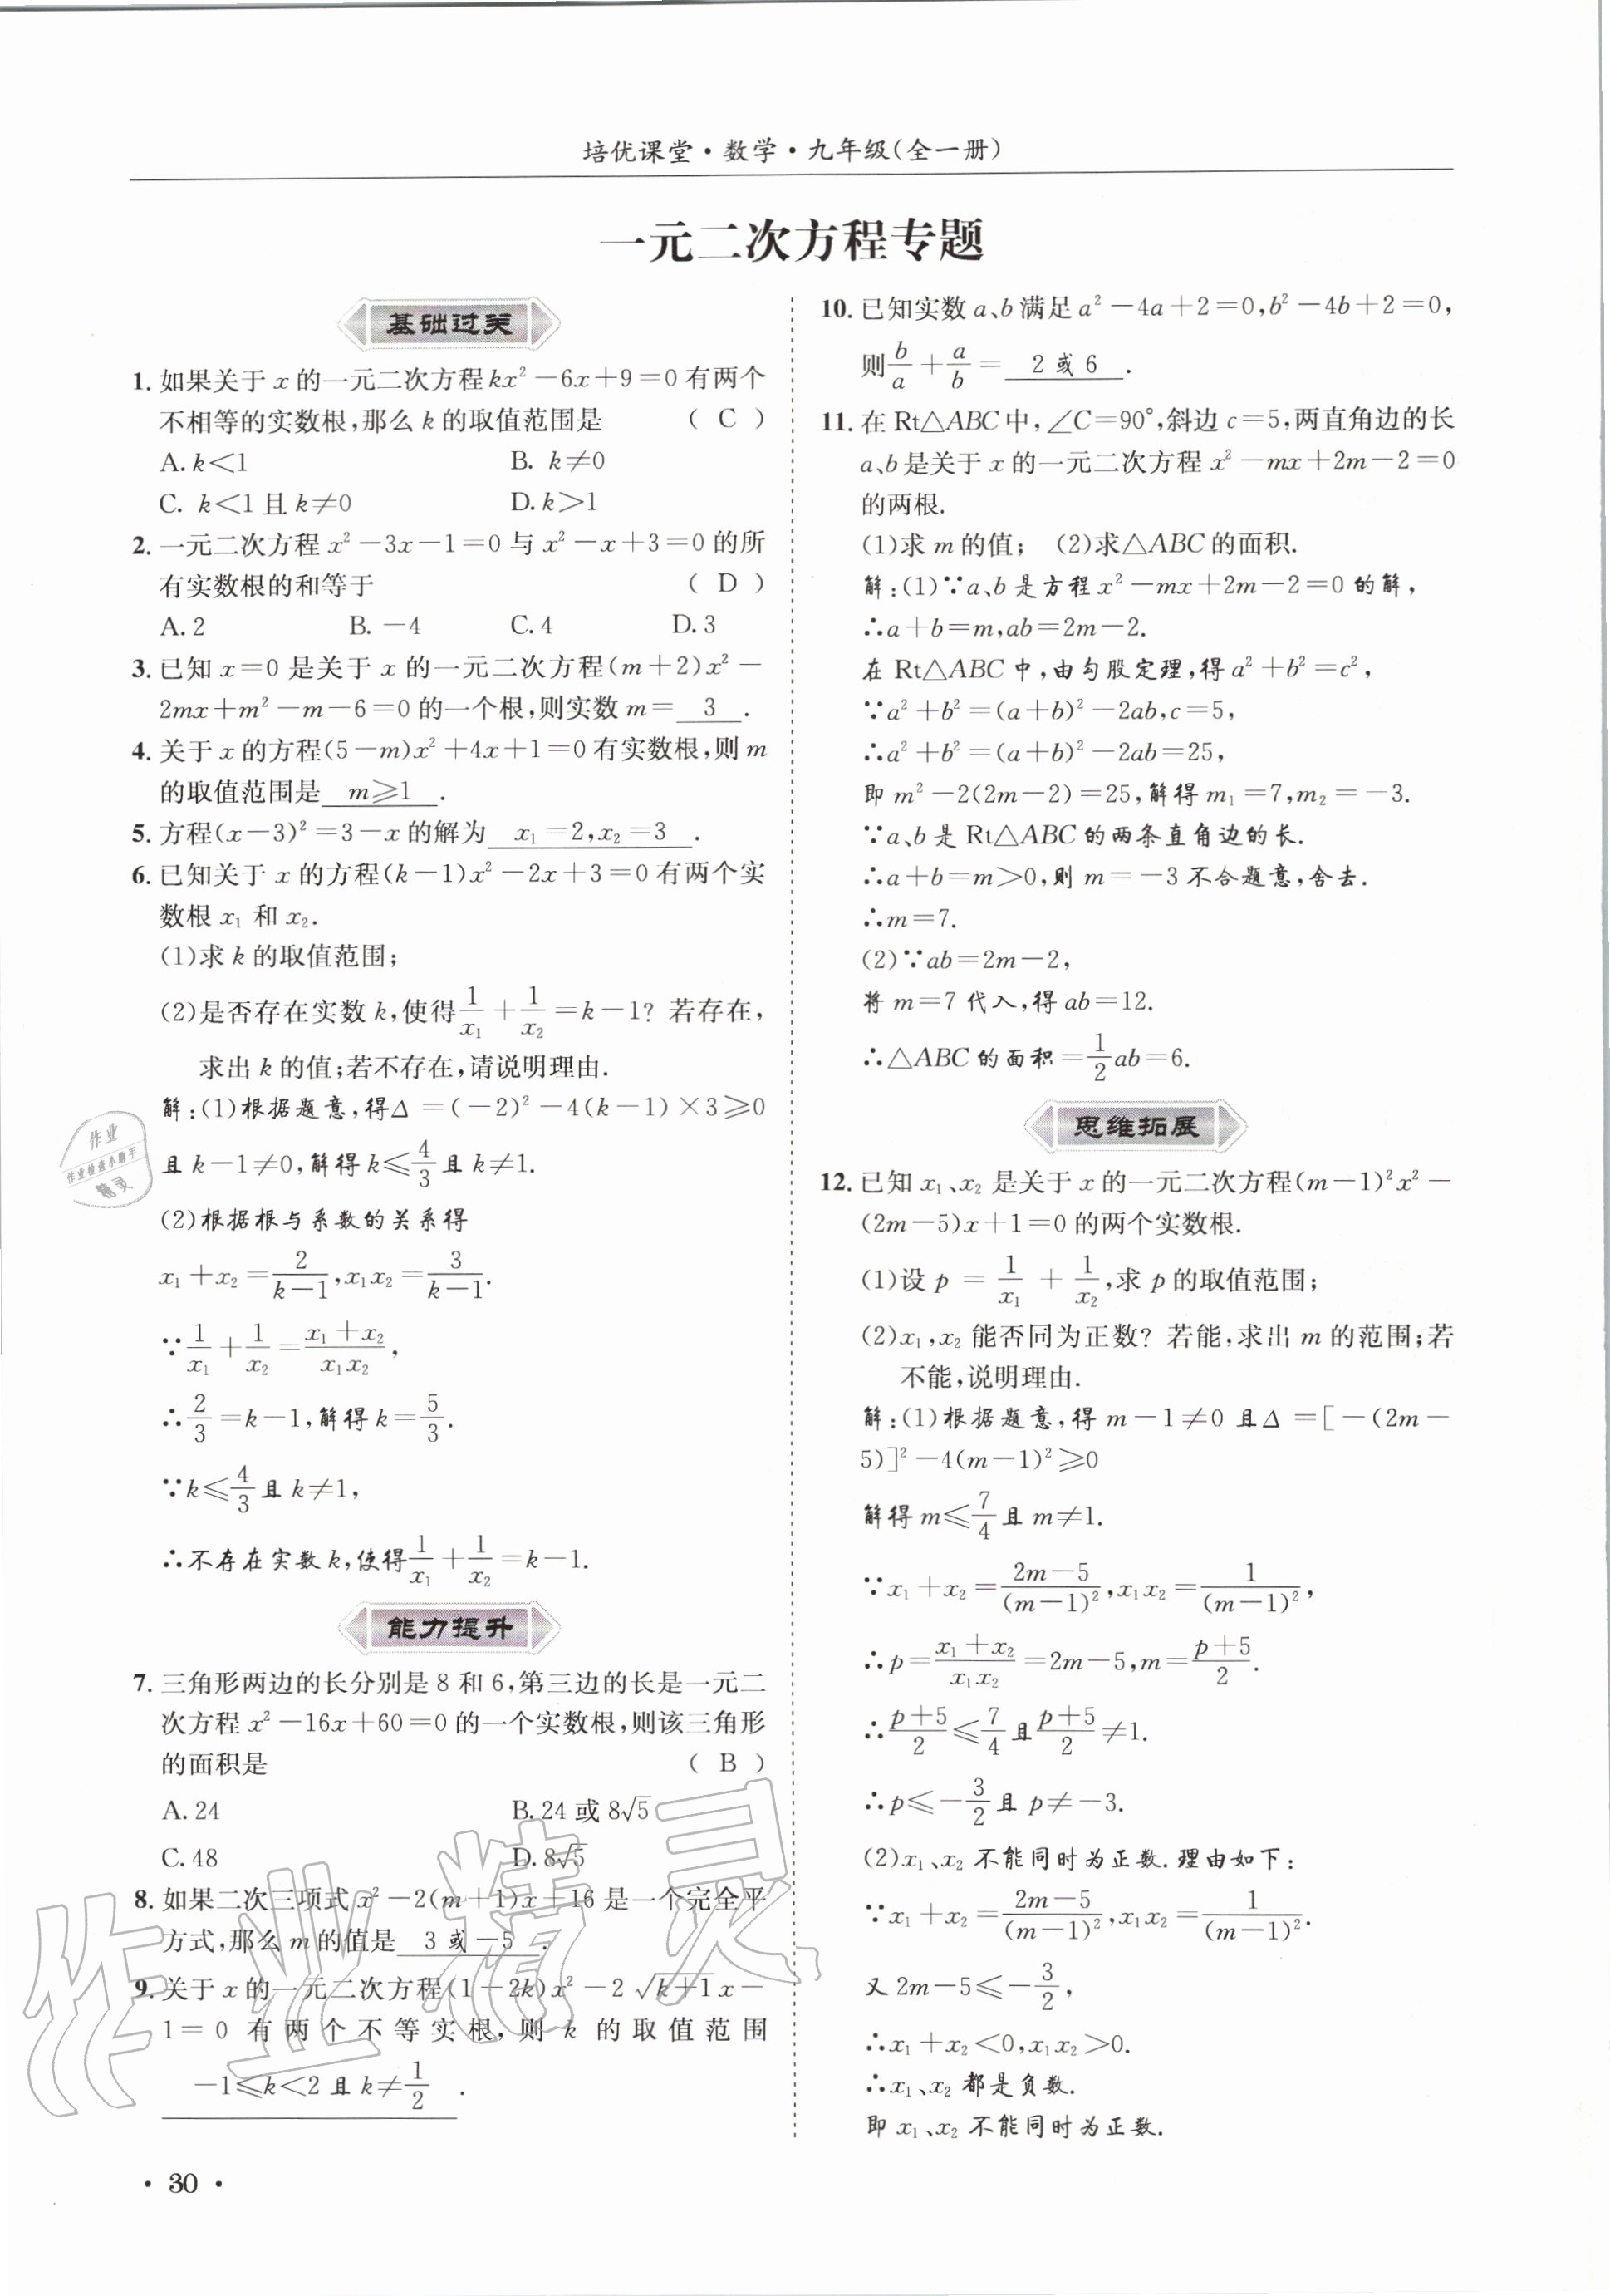 培优课堂·数学·九年级(全一册)
一元二次方程专题
基础过关
1. 如果关于 x 的一元二次方程kx²－6x＋9＝0有两个
不相等的实数根,那么 k 的取值范围是 ( C )
A. k＜1 B. k≠0
C. k＜1 且 k≠0 D. k＞1
2. 一元二次方程 x²－3x－1＝0与 x²－x＋3＝0的所
有实数根的和等于 ( D )
A. 2 B. －4 C. 4 D. 3
3. 已知 x＝0 是关于 x 的一元二次方程(m＋2)x²－
2mx＋m²－m－6＝0的一个根,则实数 m＝ 3 .
4. 关于 x 的方程(5－m)x²＋4x＋1＝0有实数根,则 m
的取值范围是 m≥1 .
5. 方程(x－3)²＝3－x的解为 x₁＝2,x₂＝3 .
6. 已知关于 x 的方程(k－1)x²－2x＋3＝0有两个实
数根 x₁ 和 x₂.
(1)求 k 的取值范围;
(2)是否存在实数 k,使得1/x₁＋1/x₂＝k－1? 若存在,
求出 k 的值;若不存在,请说明理由.
解:(1)根据题意,得Δ＝(－2)²－4(k－1)×3≥0
且 k－1≠0,解得 k≤4/3且 k≠1.
(2)根据根与系数的关系得
x₁＋x₂＝2/(k－1),x₁x₂＝3/(k－1).
∵1/x₁＋1/x₂＝(x₁＋x₂)/(x₁x₂),
∴2/3＝k－1,解得 k＝5/3.
∵k≤4/3且 k≠1,
∴不存在实数 k,使得1/x₁＋1/x₂＝k－1.
能力提升
7. 三角形两边的长分别是 8 和 6,第三边的长是一元二
次方程 x²－16x＋60＝0的一个实数根,则该三角形
的面积是 ( B )
A. 24 B. 24 或 8√5
C. 48 D. 8√5
8. 如果二次三项式 x²－2(m＋1)x＋16 是一个完全平
方式,那么 m 的值是 3 或－5 .
9. 关于 x 的一元二次方程(1－2k)x²－2√(k＋1)x－
1＝0 有两个不等实根,则 k 的取值范围
－1≤k＜2 且 k≠1/2 .
10. 已知实数 a、b 满足 a²－4a＋2＝0,b²－4b＋2＝0,
则b/a＋a/b＝ 2 或 6 .
11. 在 Rt△ABC中,∠C＝90°,斜边 c＝5,两直角边的长
a、b是关于 x 的一元二次方程 x²－mx＋2m－2＝0
的两根.
(1)求 m 的值; (2)求△ABC的面积.
解:(1)∵a、b 是方程 x²－mx＋2m－2＝0 的解,
∴a＋b＝m,ab＝2m－2.
在 Rt△ABC中,由勾股定理,得 a²＋b²＝c²,
∵a²＋b²＝(a＋b)²－2ab,c＝5,
∴a²＋b²＝(a＋b)²－2ab＝25,
即 m²－2(2m－2)＝25,解得 m₁＝7,m₂＝－3.
∵a、b 是 Rt△ABC的两条直角边的长.
∴a＋b＝m＞0,则 m＝－3不合题意,舍去.
∴m＝7.
(2)∵ab＝2m－2,
将 m＝7 代入,得 ab＝12.
∴△ABC的面积＝1/2ab＝6.
思维拓展
12. 已知 x₁、x₂ 是关于 x 的一元二次方程(m－1)²x²－
(2m－5)x＋1＝0的两个实数根.
(1)设 p＝1/x₁＋1/x₂,求 p 的取值范围;
(2)x₁,x₂ 能否同为正数? 若能,求出 m 的范围;若
不能,说明理由.
解:(1)根据题意,得 m－1≠0 且Δ＝[－(2m－
5)]²－4(m－1)²≥0
解得 m≤7/4且 m≠1.
∵x₁＋x₂＝(2m－5)/(m－1)²,x₁x₂＝1/(m－1)²,
∴p＝(x₁＋x₂)/(x₁x₂)＝2m－5,m＝(p＋5)/2.
∴(p＋5)/2≤7/4且(p＋5)/2≠1.
∴p≤－3/2且 p≠－3.
(2)x₁、x₂ 不能同时为正数.理由如下:
∵x₁＋x₂＝(2m－5)/(m－1)²,x₁x₂＝1/(m－1)².
又 2m－5≤－3/2,
∴x₁＋x₂＜0,x₁x₂＞0.
∴x₁、x₂ 都是负数.
即 x₁、x₂ 不能同时为正数.
· 30 ·
作业
作业检查小助手
精灵
作业精灵